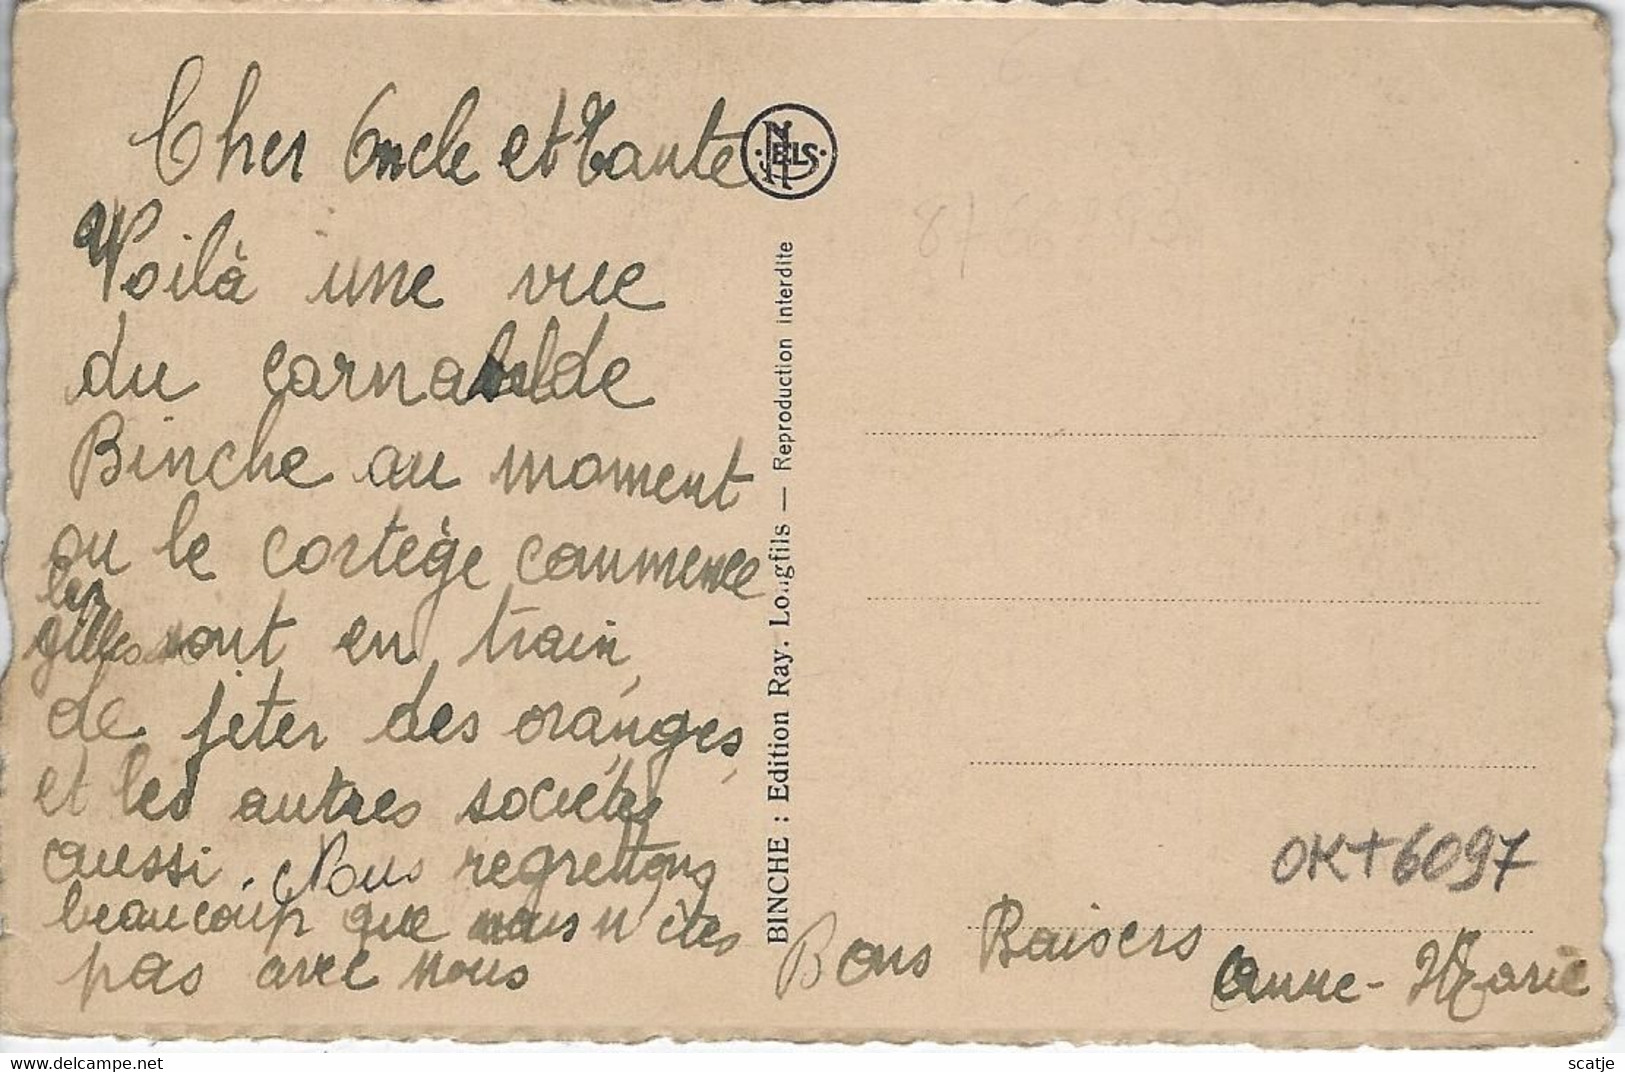 Cher Oncle et Tante
Voilà une vue
du carnaval de
Binche au moment
ou le cortège commence
les
gilles sont en train
de jeter des oranges,
et les autres sociétés
aussi. Nous regrettons
beaucoup que vous n êtes
pas avec nous
NELS
BINCHE : Edition Ray. Longfils — Reproduction interdite
OKT6097
Bons Baisers
Anne-Marie
scatje